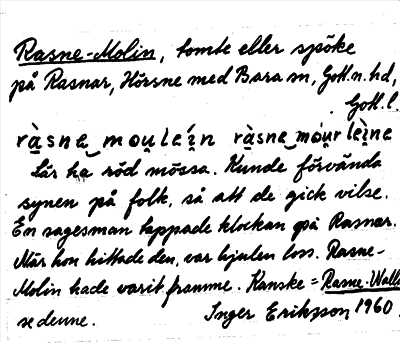 Rasne-Molin, tomte eller spöke
på Rasnar, Hörsne med Bara sn, Gotl. n. hd,
Gotl. l.
ràsne moulein ràsne mourleine
Lär ha röd mössa. Kunde förvända
synen på folk, så att de gick vilse.
En sagesman tappade klockan på Rasnar.
När hon hittade den, var hjulen loss. Rasne-
Molin hade varit framme. Kanske = Rasne-Walle
se denne. Inger Erikson 1960.